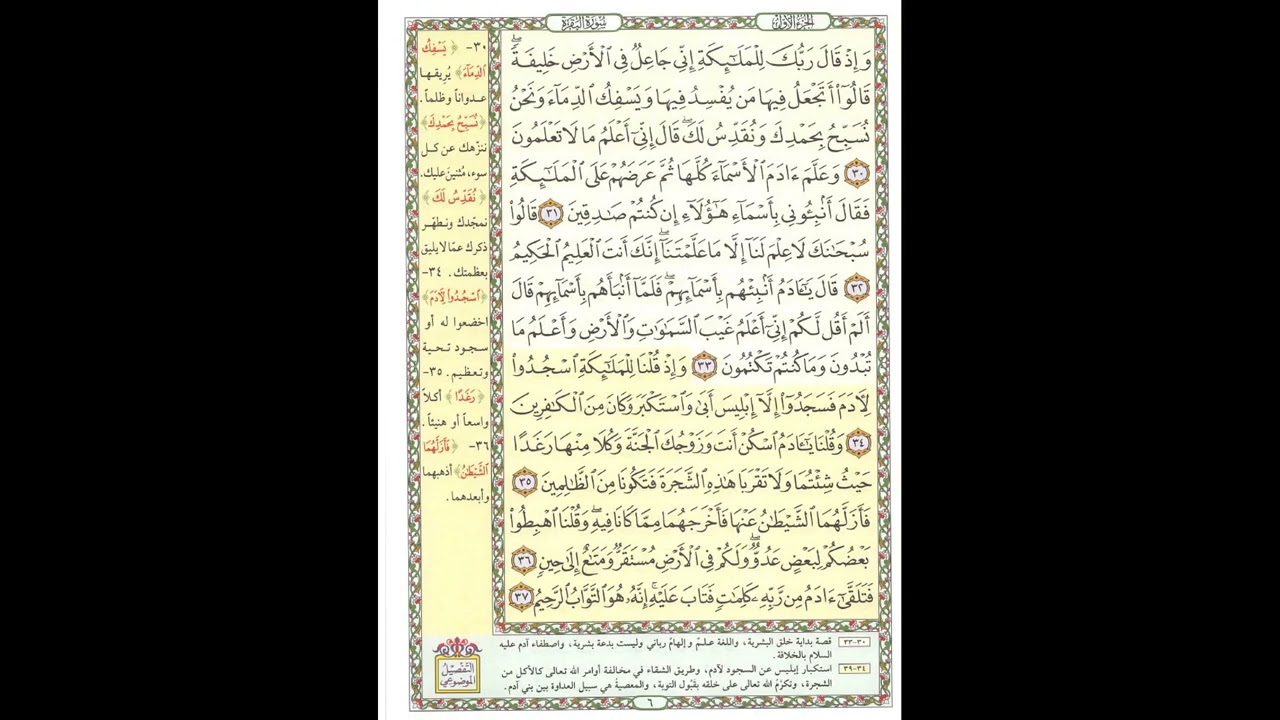 الجزء الأول
سورة البقرة
وَإِذْ قَالَ رَبُّكَ لِلْمَلَٰٓئِكَةِ إِنِّي جَاعِلٌ فِي ٱلْأَرْضِ خَلِيفَةًۖ
قَالُوٓا۟ أَتَجْعَلُ فِيهَا مَن يُفْسِدُ فِيهَا وَيَسْفِكُ ٱلدِّمَآءَ وَنَحْنُ
نُسَبِّحُ بِحَمْدِكَ وَنُقَدِّسُ لَكَۖ قَالَ إِنِّيٓ أَعْلَمُ مَا لَا تَعْلَمُونَ
٣٠ وَعَلَّمَ ءَادَمَ ٱلْأَسْمَآءَ كُلَّهَا ثُمَّ عَرَضَهُمْ عَلَى ٱلْمَلَٰٓئِكَةِ
فَقَالَ أَنۢبِـُٔونِي بِأَسْمَآءِ هَٰٓؤُلَآءِ إِن كُنتُمْ صَٰدِقِينَ ٣١ قَالُوا۟
سُبْحَٰنَكَ لَا عِلْمَ لَنَآ إِلَّا مَا عَلَّمْتَنَآۖ إِنَّكَ أَنتَ ٱلْعَلِيمُ ٱلْحَكِيمُ
٣٢ قَالَ يَٰٓـَٔادَمُ أَنۢبِئْهُم بِأَسْمَآئِهِمْۖ فَلَمَّآ أَنۢبَأَهُم بِأَسْمَآئِهِمْ قَالَ
أَلَمْ أَقُل لَّكُمْ إِنِّيٓ أَعْلَمُ غَيْبَ ٱلسَّمَٰوَٰتِ وَٱلْأَرْضِ وَأَعْلَمُ مَا
تُبْدُونَ وَمَا كُنتُمْ تَكْتُمُونَ ٣٣ وَإِذْ قُلْنَا لِلْمَلَٰٓئِكَةِ ٱسْجُدُوا۟
لِـَٔادَمَ فَسَجَدُوٓا۟ إِلَّآ إِبْلِيسَ أَبَىٰ وَٱسْتَكْبَرَ وَكَانَ مِنَ ٱلْكَٰفِرِينَ
٣٤ وَقُلْنَا يَٰٓـَٔادَمُ ٱسْكُنْ أَنتَ وَزَوْجُكَ ٱلْجَنَّةَ وَكُلَا مِنْهَا رَغَدًا
حَيْثُ شِئْتُمَا وَلَا تَقْرَبَا هَٰذِهِ ٱلشَّجَرَةَ فَتَكُونَا مِنَ ٱلظَّٰلِمِينَ ٣٥
فَأَزَلَّهُمَا ٱلشَّيْطَٰنُ عَنْهَا فَأَخْرَجَهُمَا مِمَّا كَانَا فِيهِۖ وَقُلْنَا ٱهْبِطُوا۟
بَعْضُكُمْ لِبَعْضٍ عَدُوٌّۖ وَلَكُمْ فِي ٱلْأَرْضِ مُسْتَقَرٌّ وَمَتَٰعٌ إِلَىٰ حِينٍ ٣٦
فَتَلَقَّىٰٓ ءَادَمُ مِن رَّبِّهِۦ كَلِمَٰتٍ فَتَابَ عَلَيْهِۚ إِنَّهُۥ هُوَ ٱلتَّوَّابُ ٱلرَّحِيمُ ٣٧
٣٠- ﴿يَسْفِكُ
ٱلدِّمَآءَ﴾ يُريقها
عدواناً وظلماً.
﴿نُسَبِّحُ بِحَمْدِكَ﴾
ننزّهك عن كل
سوء، مُثنينَ عليك.
﴿نُقَدِّسُ لَكَ﴾
نمجّدك ونطهّر
ذكرك عمّا لا يليق
بعظمتك. ٣٤-
﴿ٱسْجُدُوا۟ لِـَٔادَمَ﴾
اخضعوا له أو
سجود تحية
وتعظيم. ٣٥-
﴿رَغَدًا﴾ أكلاً
واسعاً أو هنيئاً.
٣٦- ﴿فَأَزَلَّهُمَا
ٱلشَّيْطَٰنُ﴾ أذهبهما
وأبعدهما.
٣٠-٣٣ قصة بداية خلق البشرية، واللغة علمٌ وإلهامٌ رباني وليست بدعة بشرية، واصطفاء آدم عليه
السلام بالخلافة.
٣٤-٣٩ استكبار إبليس عن السجود لآدم، وطريق الشقاء في مخالفة أوامر الله تعالى كالأكل من
الشجرة، وتكرّمُ الله تعالى على خلقه بقَبُول التوبة، والمعصيةُ هي سبيل العداوة بين بني آدم.
التفصيل
الموضوعي
٦